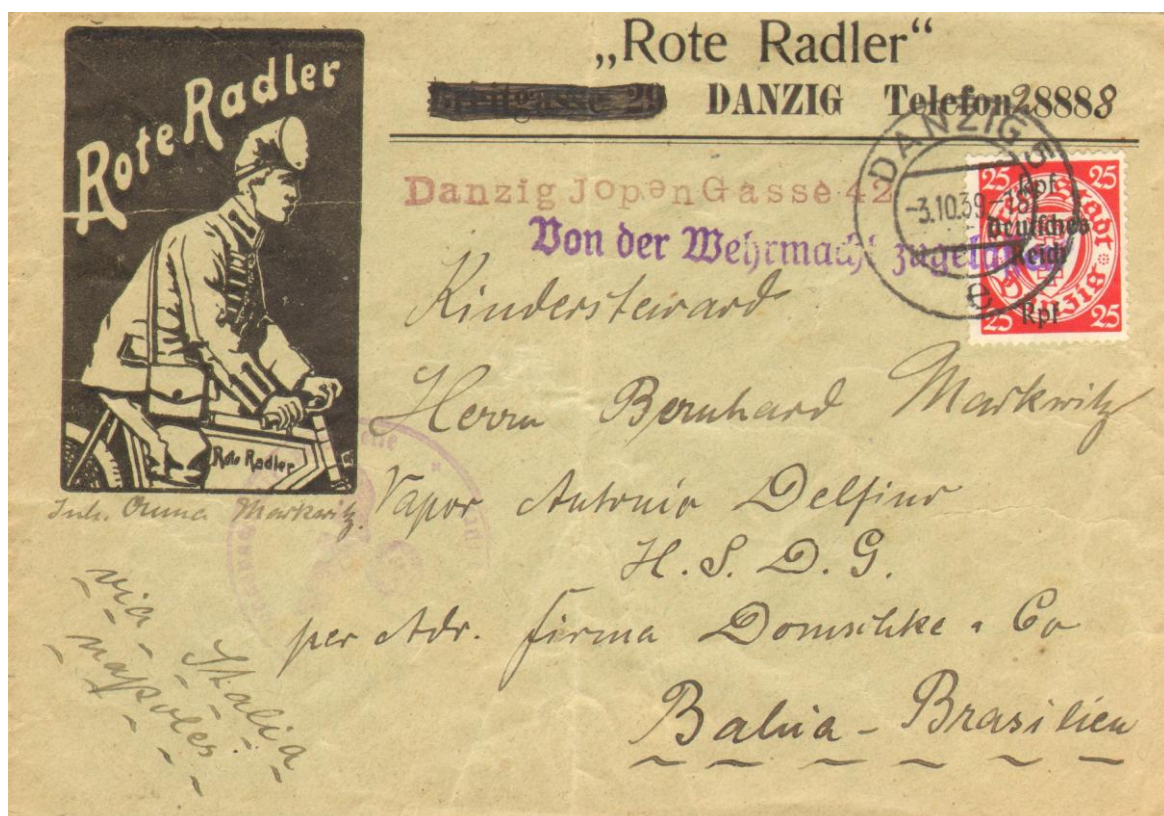 Rote Radler
„Rote Radler“
Breitgasse 29 DANZIG Telefon 28888
Danzig JopenGasse 42
Von der Wehrmacht zugelassen
DANZIG 5
-3.10.39-18
e
25 Rpf 25
Deutsches
Reich
25 Rpf 25
Kindersteward
Herrn Bernhard Markwitz
Vapor Antonio Delfino
H. S. D. G.
per Adr. Firma Domschke & Co
Bahia - Brasilien
Rote Radler
Inh. Markwitz.
via Italia
napoles.